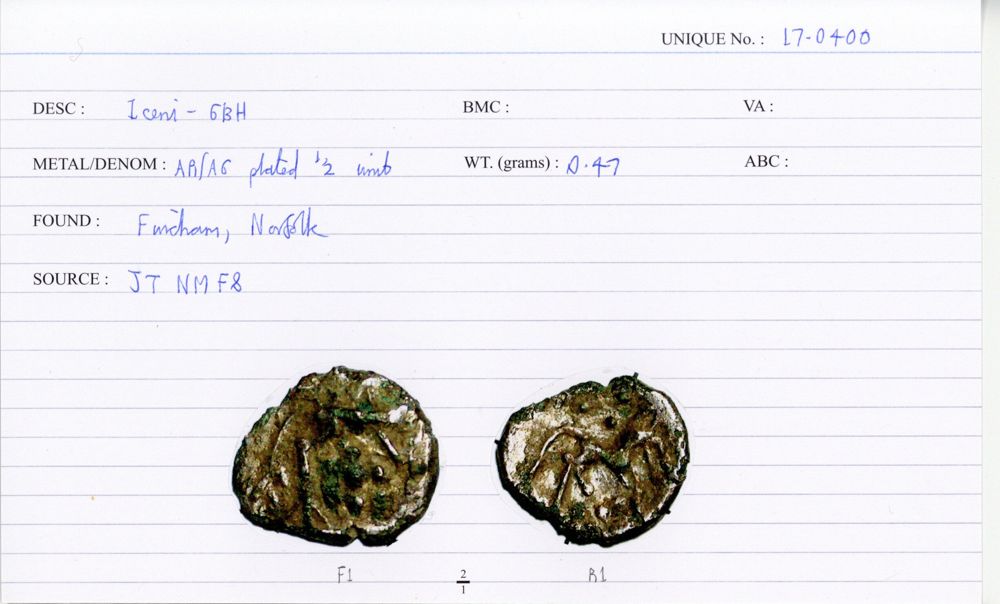 UNIQUE No. : 17-0400
DESC : Iceni - GBH BMC : VA :
METAL/DENOM : AR/AG plated ½ unit WT. (grams) : 0.47 ABC :
FOUND : Fincham, Norfolk
SOURCE : JT NMF8
F1 2/1 R1